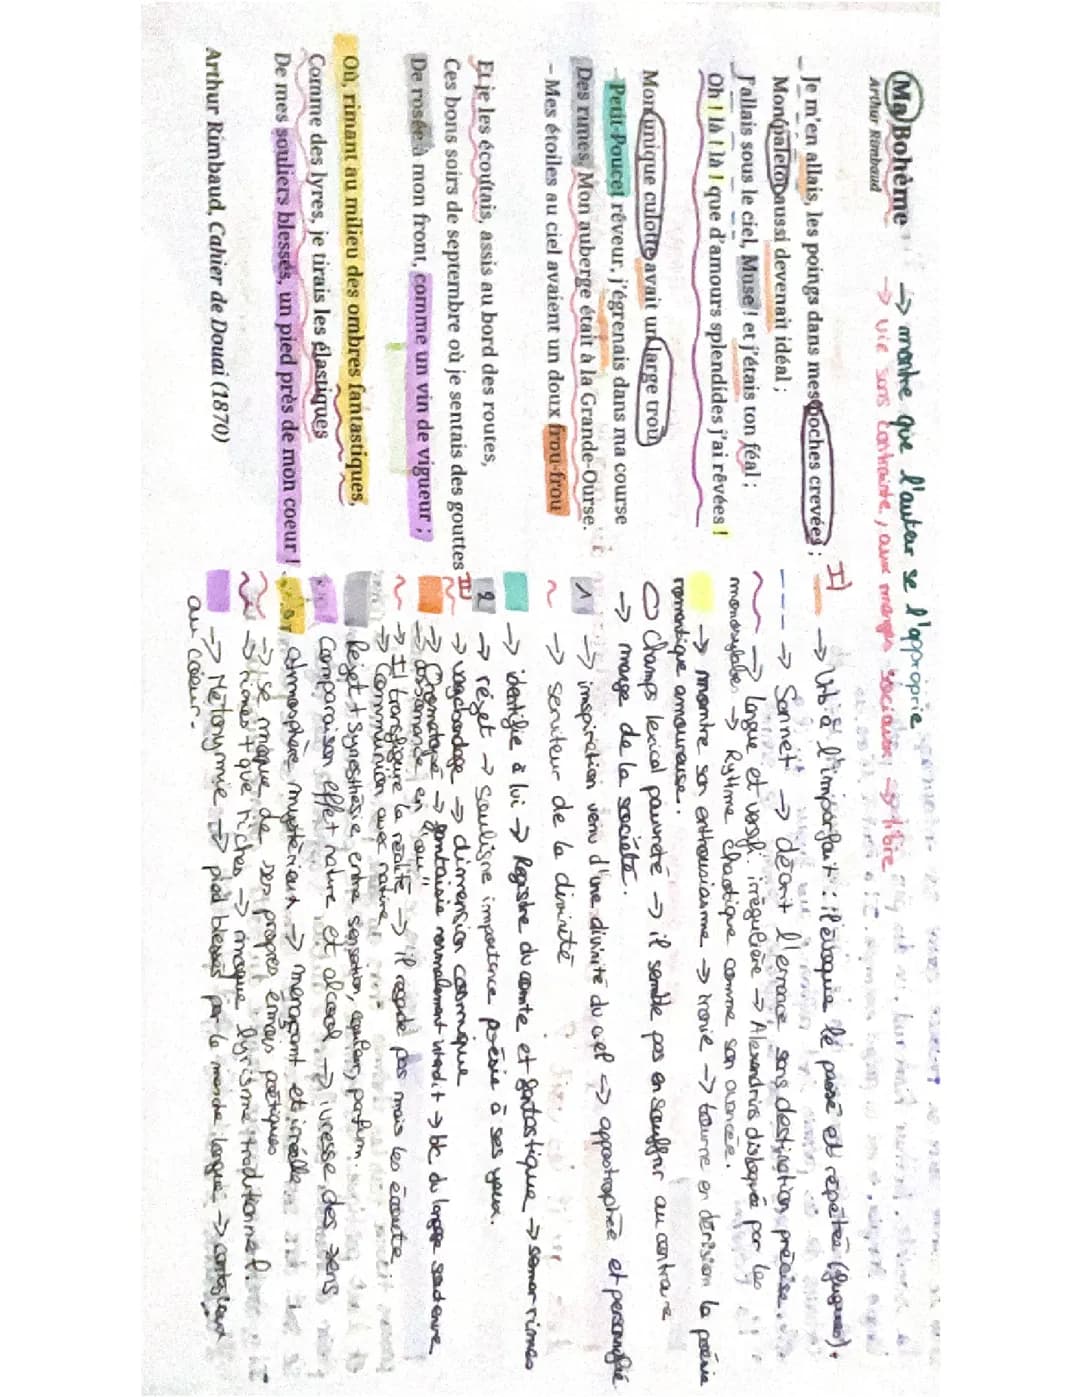 Ma Bohème
Arthur Rimbaud
→ montre que l'auteur se l'approprie
→ vie sans contrainte, aux marges sociaux → libre
Je m'en allais, les poings dans mes poches crevées ;
Mon paletot aussi devenait idéal ;
J'allais sous le ciel, Muse ! et j'étais ton féal ;
Oh ! là ! là ! que d'amours splendides j'ai rêvées !
Mon unique culotte avait un large trou.
- Petit-Poucet rêveur, j'égrenais dans ma course
Des rimes. Mon auberge était à la Grande-Ourse.
- Mes étoiles au ciel avaient un doux frou-frou
Et je les écoutais, assis au bord des routes,
Ces bons soirs de septembre où je sentais des gouttes
De rosée à mon front, comme un vin de vigueur ;
Où, rimant au milieu des ombres fantastiques,
Comme des lyres, je tirais les élastiques
De mes souliers blessés, un pied près de mon coeur !
Arthur Rimbaud, Cahier de Douai (1870)
I)
→ Vb à l'imparfait : il évoque le passé et répétée (fugues)
→ Sonnet → décrit l'errance sans destination précise.
→ longue et versifi. irrégulière → Alexandrins disloqués par les
monosyllabes → Rythme chaotique comme son avancée.
→ montre son enthousiasme → ironie → tourne en dérision la poésie
romantique amoureuse.
Champs lexical pauvreté → il semble pas en souffrir au contraire
→ marge de la société.
1 → inspiration venu d'une divinité du ciel → appostrophée et personnifié
→ serviteur de la divinité
→ identifie à lui → Registre du conte et fantastique → semer rimes
2 → rejet → Souligne importance poésie à ses yeux.
II)
→ vagabondage → dimension cosmique
→ Onomatopé → fantaisie normalement interdit → bc du langage soutenue
→ assonance en "ou"
→ Il transfigure la réalité → il regarde pas mais les écoute
→ Communion avec nature
Rejet + Synesthésie entre sensation, couleur, parfum.
Comparaison effet nature et alcool → ivresse des sens
atmosphère mystérieux → menaçant et irréelle
→ se moque de ses propres émois poétiques
→ rimes + que riches → moque lyrisme traditionnel.
→ Métonymie → pied blessés par la marche longue →
au coeur.